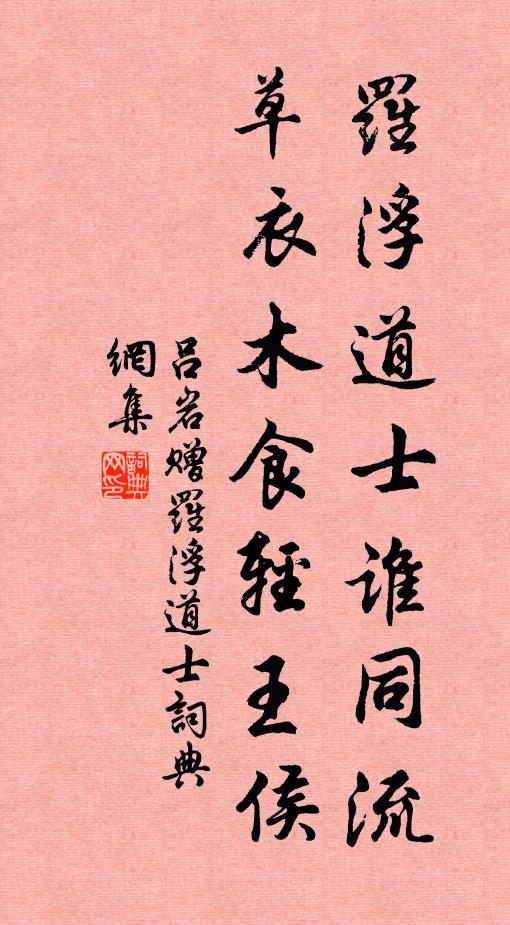 羅浮道士谁同流
草衣木食輕王侯
吕岩赠羅浮道士詞典
網集
詞典網印